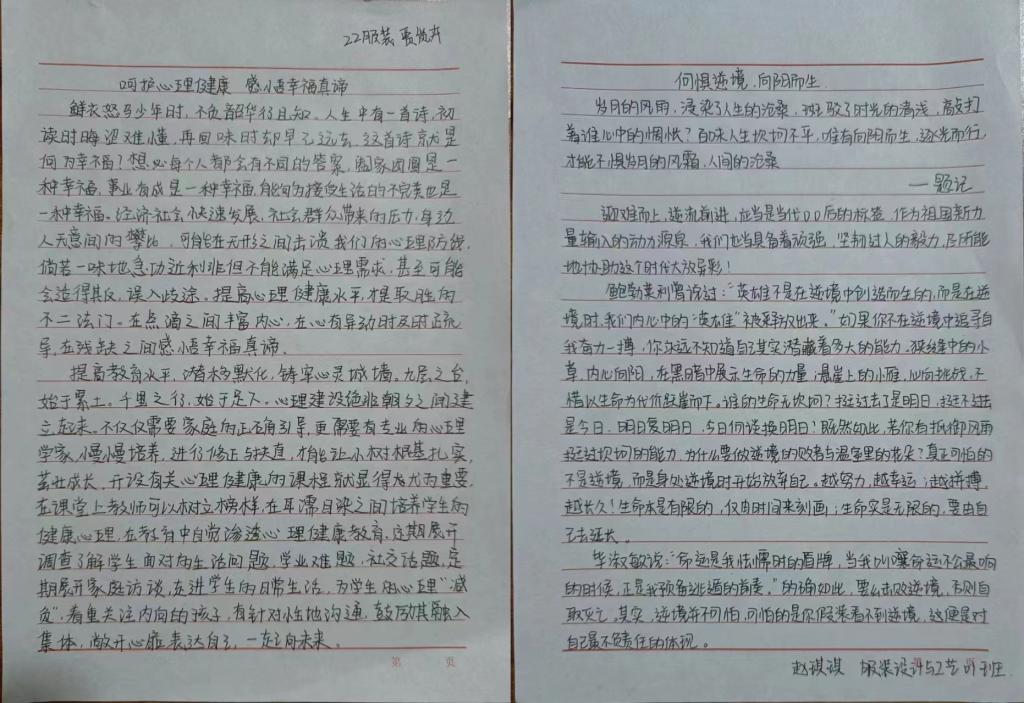 22服装
呵护心理健康 感悟幸福真谛
鲜衣怒马少年时，不负韶华行且知。人生中有一首诗，初
读时晦涩难懂，再回味时却早已远去，这首诗就是
何为幸福？想必每个人都会有不同的答案，阖家团圆是一
种幸福，事业有成是一种幸福，能够为接受生活的不完美也是
一种幸福。经济社会快速发展，社会群众带来的压力，身边
人无意间的攀比，可能在无形之间击溃我们的心理防线，
倘若一味地急功近利非但不能满足心理需求，甚至可能
会适得其反，误入歧途。提高心理健康水平，才是取胜的
不二法门。在点滴之间丰富内心，在心有异动时及时疏
导，在残缺之间感悟幸福真谛。
提高教育水平，潜移默化，铸牢心灵城墙。九层之台，
始于累土。千里之行，始于足下。心理建设绝非朝夕之间建
立起来。不仅仅需要家庭的正确引导，更需要有专业的心理
学家，慢慢培养，进行修正与扶直，才能让小树根基扎实，
茁壮成长，开设有关心理健康的课程就显得尤为重要，
在课堂上教师可以树立榜样，在耳濡目染之间培养学生的
健康心理，在教育中自觉渗透心理健康教育，定期展开
调查了解学生面对的生活问题，学业难题，社交话题，定
期展开家庭访谈，走进学生的日常生活，为学生的心理“减
负”，着重关注内向的孩子，有针对性地沟通，鼓励其融入
集体，敞开心扉表达自己，一起向未来。
第 页
何惧逆境，向阳而生
岁月的风雨，浸染了人生的沧桑，斑驳了时光的清浅，敲打
着谁心中的惆怅？百味人生坎坷不平，唯有向阳而生，逐光而行
才能不惧岁月的风霜，人间的沧桑
——题记
迎难而上，逆流前进，应当是当代00后的标签，作为祖国新力
量输入的动力源泉，我们也当具备着顽强，坚韧过人的毅力，尽所能
地协助这个时代大放异彩！
鲍勃莱利曾说过：“英雄不是在逆境中创造而生的，而是在逆
境时，我们内心中的“英雄”被释放出来。”如果你不在逆境中追寻自
我奋力一搏，你永远不知道自己其实潜藏着多大的能力。狭缝中的小
草，内心向阳，在黑暗中展示生命的力量；悬崖上的小雁，心向挑战，不
惜以生命为代价跃崖而下。谁的生命无坎坷？挺过去了是明日，挺不过去
是今日，明日复明日，今日何谈换明日！既然如此，若你有抵御风雨
挺过坎坷的能力，为什么要做逆境的败者与温室里的花朵？真正可怕的
不是逆境，而是身处逆境时开始放弃自己。越努力，越幸运；越拼搏，
越长久！生命本是有限的，仅由时间来刻画；生命实是无限的，要由自
己去延长。
毕淑敏说：“命运是我怯懦时的盾牌，当我叫嚷命运不公最响
的时候，正是我预备逃遁的前奏。”的确如此，要么击败逆境，否则自
取灭亡。其实，逆境并不可怕，可怕的是你假装看不到逆境，这便是对
自己最不负责任的体现。
赵琪琪 服装设计与工艺 班